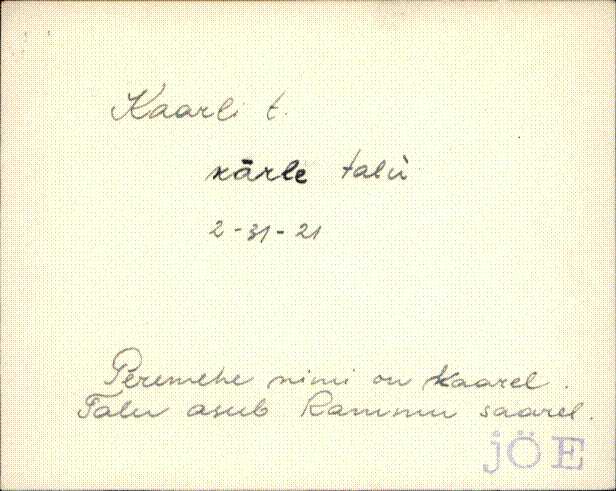 Kaarli t.
kārle talù
2-31-21
Peremehe nimi on Kaarel.
Talu asub Rammu saarel.
JÕE